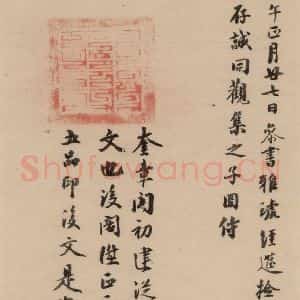 午正月廿七日叅書雅琥經筵檢
存誠同觀集之子侍
奎章閣初建從
文也後閣陞正
五品印後文是
Shufawang.CN